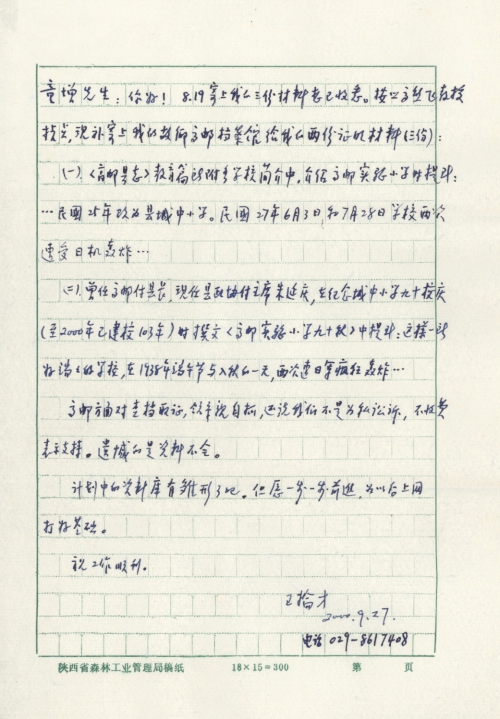 童增先生：你好！8.19寄上我的三份材料想已收悉。按公方燕飞在授
权书，现补寄上我的故乡高邮档案馆给我的两份证明材料(三份)：
(一)、《高邮县志》教育篇所附各学校简介中，介绍高邮实验小学时提到：
…民国25年改为县城中小学。民国27年6月3日，和7月28日学校两次
遭受日机轰炸…
(二)、曾任高邮付县长，现任县政协付主席朱延庆，在纪念城中小学九十校庆
(至2000年已建校103年)时撰文《高邮实验小学九十秋》中提到：这样一所
好端端的学校，在1938年端午节与入秋的一天，两次遭日寇疯狂轰炸…
高邮方面对查档取证，领导亲自抓，还说我们不是为私讼诉，不收费
表示支持。遗憾的是资料不全。
计划中的资料库有雏形了吧。但愿一步一步前进，为以后上网
打好基础。
祝工作顺利。
王
2000.9.27.
电话 029-8617408
陕西省森林工业管理局稿纸 18×15=300 第 页